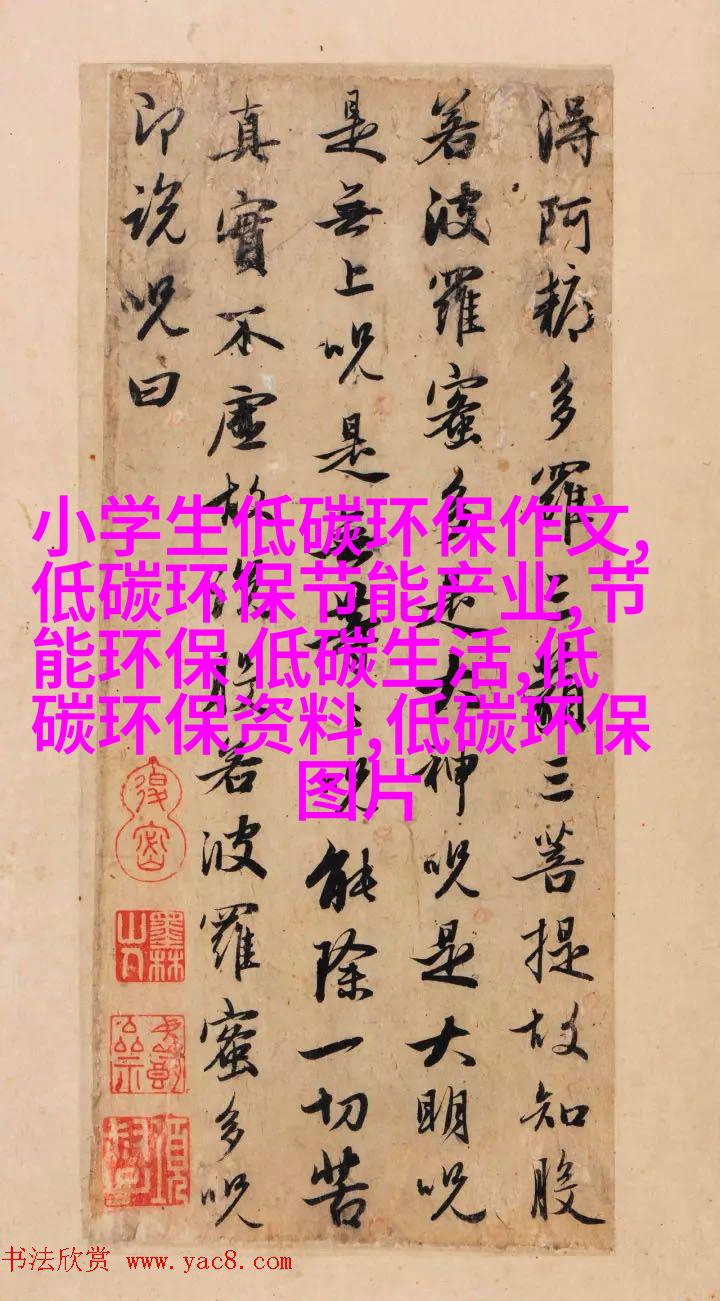 得阿耨多羅三藐三菩提故知般
若波羅蜜多是大神呪是大明呪
是無上呪是無等等呪能除一切苦
真實不虛故說般若波羅蜜多呪
即說呪曰
小学生低碳环保作文,
低碳环保节能产业,节
能环保 低碳生活,低
碳环保资料,低碳环保
图片
墨林山人
书法欣赏 www.yac8.com